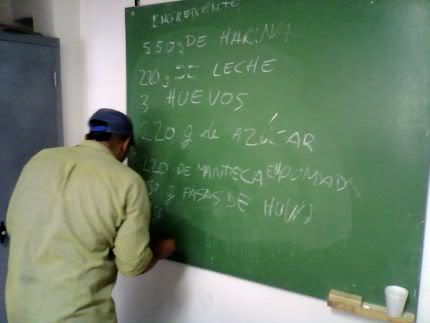 INGREDIENTE
550g DE HARINA
220g DE LECHE
3 HUEVOS
220 g de AZÚCAR
220 DE MANTECA EN POMADA
g PASAS DE
g